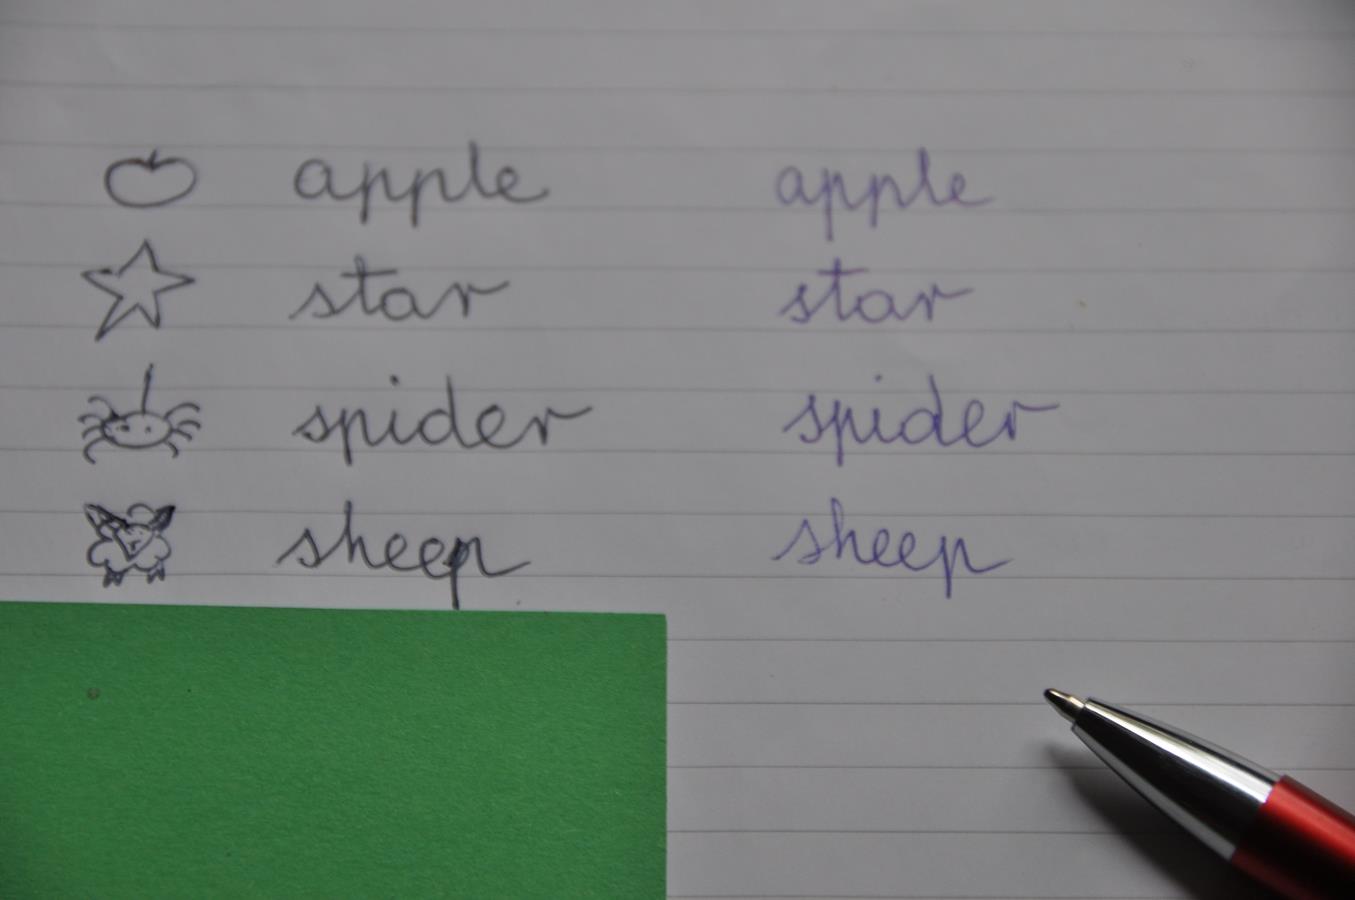 apple apple
star star
spider spider
sheep sheep